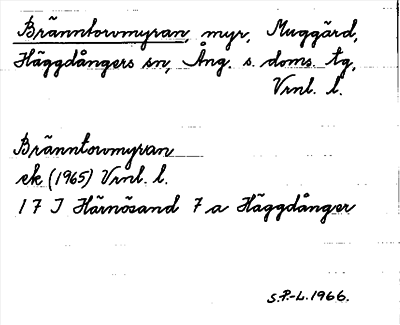 Bränntorvmyran, myr, Muggärd,
Häggdångers sn, Ång. s. doms. tg,
Vrnl. l.
Bränntorvmyran
ek (1965) Vrnl. l.
17 I Härnösand 7 a Häggdånger
S.P.-L. 1966.